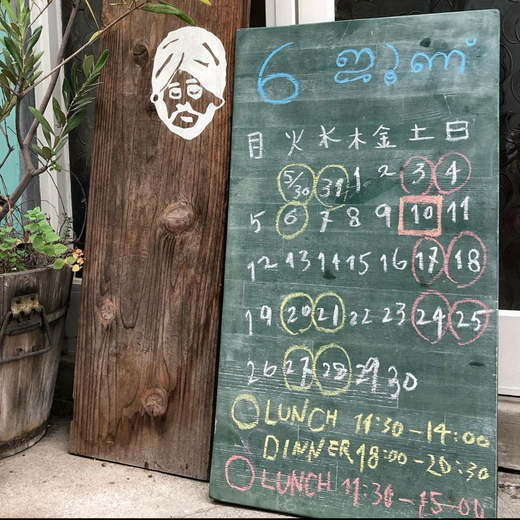 6 ജൂണ്
月 火 水 木 金 土 日
5/30 31 1 2 3 4
5 6 7 8 9 10 11
12 13 14 15 16 17 18
19 20 21 22 23 24 25
26 27 28 29 30
LUNCH 11:30-14:00
DINNER 18:00-20:30
LUNCH 11:30-15:00